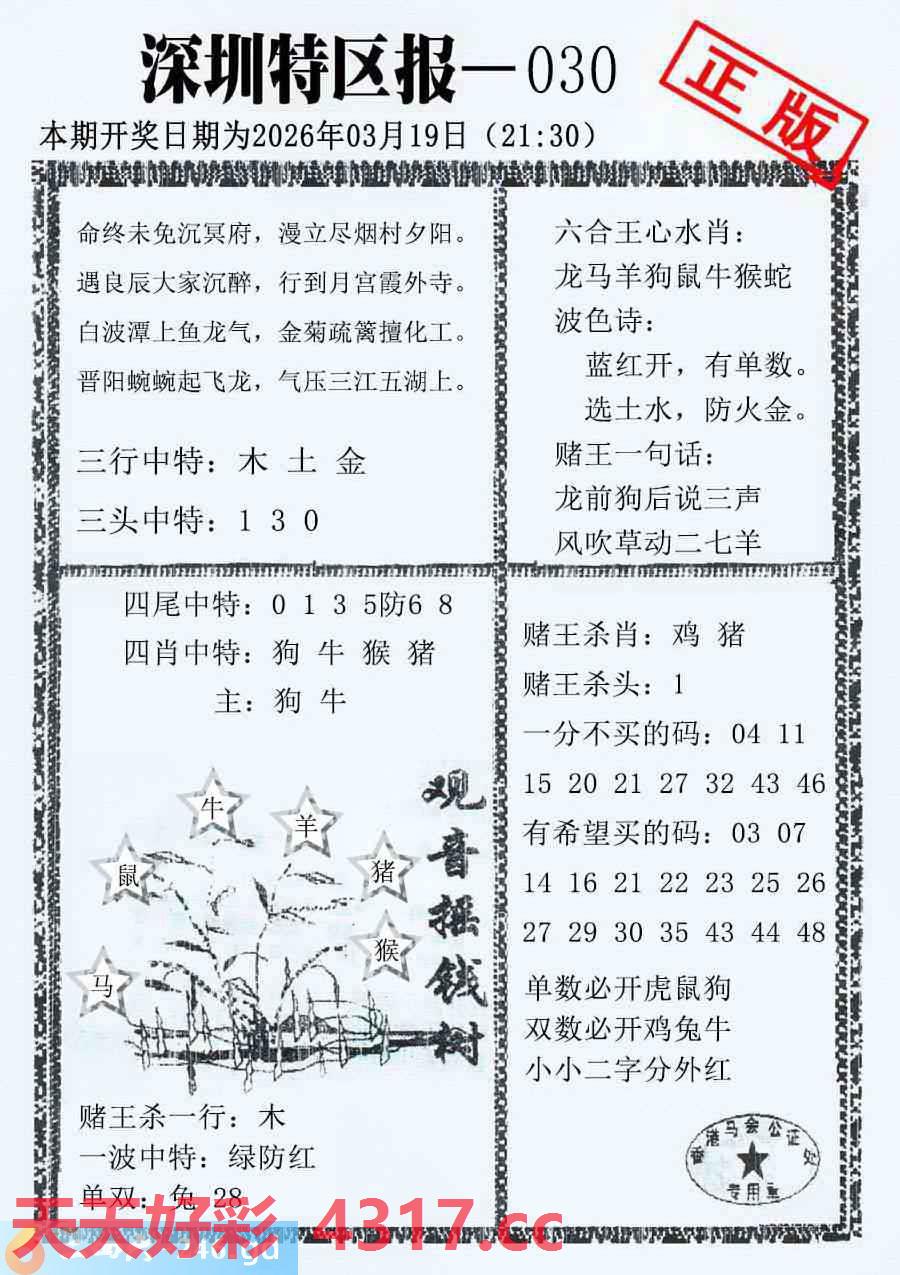 深圳特区报—030
正版
本期开奖日期为2026年03月19日（21:30）
命终未免沉冥府，漫立尽烟村夕阳。
遇良辰大家沉醉，行到月宫霞外寺。
白波潭上鱼龙气，金菊疏篱擅化工。
晋阳蜿蜿起飞龙，气压三江五湖上。
三行中特：木 土 金
三头中特：1 3 0
六合王心水肖：
龙马羊狗鼠牛猴蛇
波色诗：
蓝红开，有单数。
选土水，防火金。
赌王一句话：
龙前狗后说三声
风吹草动二七羊
四尾中特：0 1 3 5防6 8
四肖中特：狗 牛 猴 猪
主：狗 牛
牛
羊
鼠
猪
猴
马
观音摇钱树
赌王杀一行：木
一波中特：绿防红
单双：兔 28
赌王杀肖：鸡 猪
赌王杀头：1
一分不买的码：04 11
15 20 21 27 32 43 46
有希望买的码：03 07
14 16 21 22 23 25 26
27 29 30 35 43 44 48
单数必开虎鼠狗
双数必开鸡兔牛
小小二字分外红
香港马会公证处
专用章
天天好彩 4317.cc